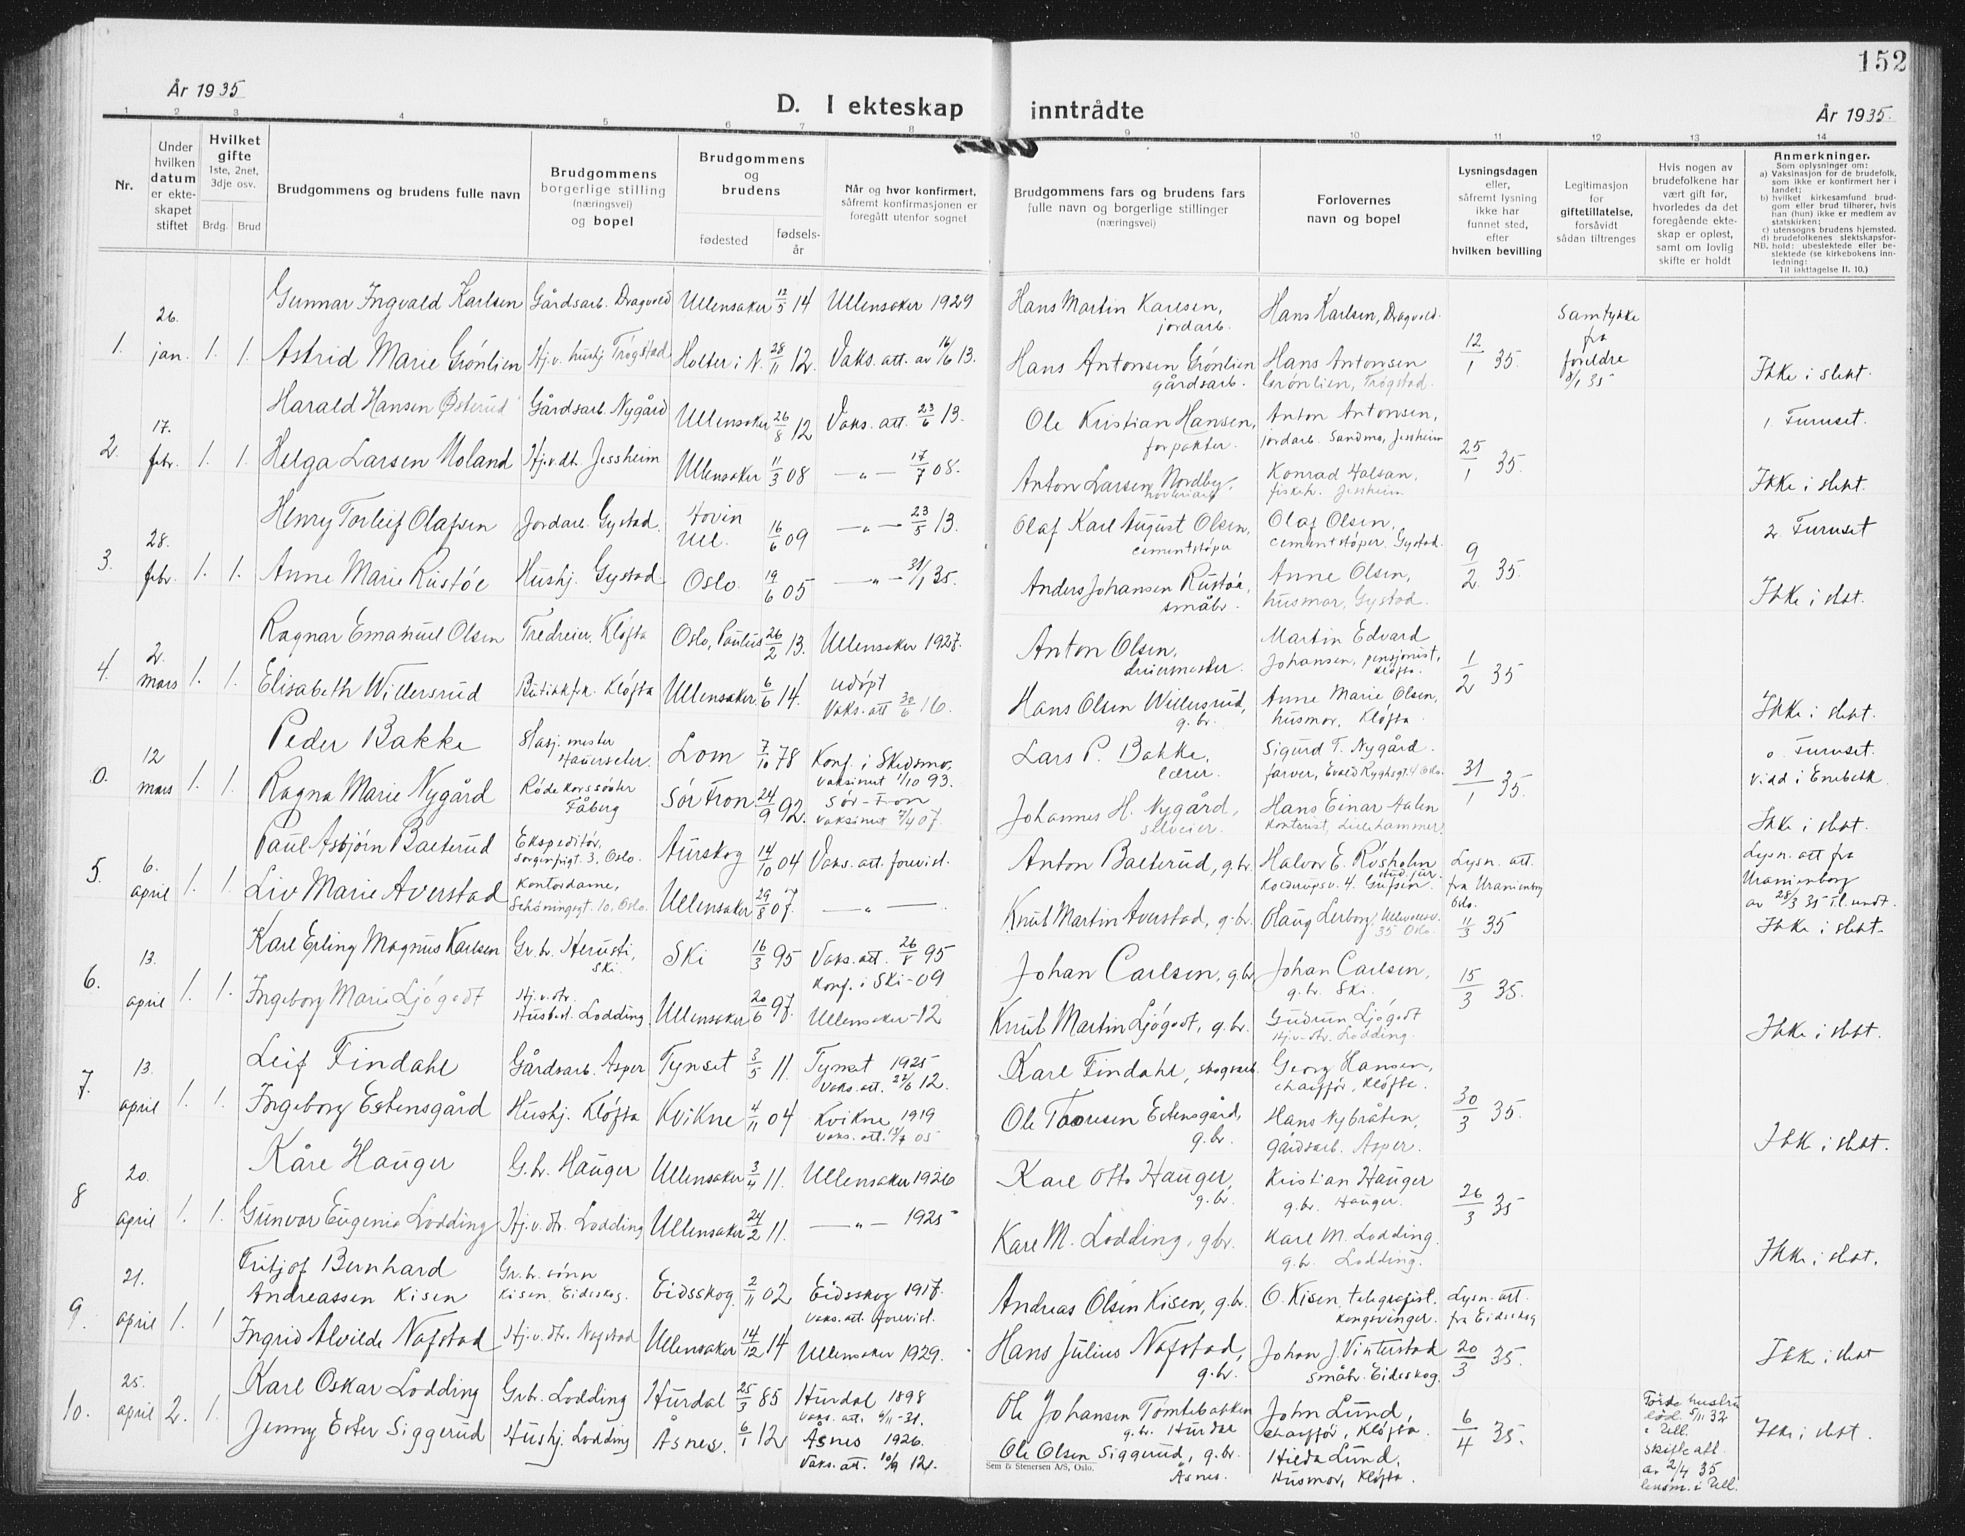 152
År 1935
D. I ekteskap inntrådte
År 1935.
1 2 3 4 5 6 7 8 9 10 11 12 13 14
Nr.
Under hvilken datum er ekteskapet stiftet
Hvilket gifte 1ste, 2net, 3dje osv.
Brdg. Brud
Brudgommens og brudens fulle navn
Brudgommens borgerlige stilling (næringsvei) og bopel
Brudgommens og brudens
fødested
fødselsår
Når og hvor konfirmert, såfremt konfirmasjonen er foregått utenfor sognet
Brudgommens fars og brudens fars fulle navn og borgerlige stillinger (næringsvei)
Forlovernes navn og bopel
Lysningsdagen eller, såfremt lysning ikke har funnet sted, efter hvilken bevilling
Legitimasjon for giftetillatelse, forsåvidt sådan tiltrenges
Hvis nogen av brudefolkene har vært gift før, hvorledes da det foregående ekteskap er opløst, samt om lovlig skifte er holdt
Anmerkninger.
Som oplysninger om:
a) Vaksinasjon for de brudefolk, som ikke er konfirmert her i landet;
b) hvilket kirkesamfund brudgom eller brud tilhører, hvis han (hun) ikke er medlem av statskirken;
c) utensogns brudens hjemsted.
d) brudefolkenes slektskapsforhold: ubeslektede eller beslektede (se kirkebokens innledning:
NB.
Til iakttagelse II. 10.)
26. Gunnar Ingvald Karlsen Gårdsarb. Dragvold Ullensaker 12/5 14 Ullensaker 1929 Hans Martin Karlsen, jordarb. Hans Karlsen, Dragvold. Samtykke fra foreldre
1. jan. 1. 1. Astrid Marie Grönlien Hj.v. hushj Trøgstad Holter i N. 28/11 12. Vaks. att. av 16/16 13. Hans Antonsen Grönlien gårdsarb. Hans Antonsen Grönlien, Trøgstad. 12/1 35. 8/1 35 Ikke i slekt.
17. Harald Hansen Østerud Gårdsarb. Nygård Ullensaker 26/8 12 Vaks. att. 23/6 13. Ole Kristian Hansen, forpakter. Anton Antonsen, jordarb. Sandmo, Jessheim 1. Furuset.
2. febr. 1. 1. Helga Larsen Moland Hj.v.dt. Jessheim Ullensaker 11/3 08 — " — 17/7 08. Anton Larsen Nordby, Konrad Halsan, fiskeh. Jessheim 25/1 35. Ikke i slekt.
28. Henry Torleif Olafsen Jordarb. Gystad. Hovin Ull. 16/6 09 — " — 23/5 13. Olaf Karl August Olsen, cementstöper Olaf Olsen, cementstöper, Gystad. 2. Furuset
3. febr. 1. 1. Anne Marie Rustöe Hushj. Gystad Oslo. 19/6 05 — " — 31/1 35. Anders Johansen Rustöe, småbr. Anne Olsen, husmor, Gystad. 9/2 35. Ikke i slekt.
2. Ragnar Emanuel Olsen Tredreier, Kløfta Oslo, Paulus 26/2 13. Ullensaker 1927. Anton Olsen, dreiermester. Martin Edvard Johansen, pensjonist, Kløfta.
4. mars 1. 1. Elisabeth Willersrud Butikkfrk. Kløfta Ullensaker 6/6 14. udöpt Vaks. att 30/6 16. Hans Olsen Willersrud, g.br. Anne Marie Olsen, husmor, Kløfta. 1/2 35 Ikke i slekt.
12 Peder Bakke Hasj.mester Hauerseter. Lom 7/10 78 Konf. i Skedsmo, vaksinert 1/10 93. Lars P. Bakke, lærer. Sigurd T. Nygård, farver, Evald Ryghsgt. 4 Oslo. o. Furuset. Vidd i Enebakk.
0. mars 1. 1. Ragna Marie Nygård Röde korssöster Fåberg Sör Fron 24/9 92. Sör-Fron vaksinert 7/4 07. Johannes H. Nygård, selveier. Hans Einar Aalen Kontorist, Lillehammer. 31/1 35. Ikke i slekt.
6. Paul Asbjörn Baeterud Ekspeditör, Sorgenfrigt. 3, Oslo. Aurskog 14/10 04 Vaks. att. forevist. Anton Baeterud, g.br. Halvor E. Rosholm stud.jur. Kolderupsv. 4. Grefsen. Lysn. att. fra Uranienborg Oslo. Lysn. att fra Uranienborg av 28/3 35 til undt.
5. april 1. 1. Liv Marie Averstad Kontordame, Schöningsgt. 10, Oslo. Ullensaker 29/8 07 — " — Knut Martin Averstad, g.br. Olaug Lerborg, Ullevålsv. 35 Oslo. 11/3 35 Ikke i slekt.
13. Karl Erling Magnus Karlsen Gr.br. Herusti, Ski. Ski 16/3 95 Vaks. att. 26/8 95 Konf. i Ski-09 Johan Carlsen, g.br. Johan Carlsen, g.br. Ski.
6. april 1. 1. Ingeborg Marie Ljögodt Hj.v.dtr. Husbest. Lodding. Ullensaker 20/6 97. Ullensaker-12 Knut Martin Ljögodt, g.br. Gudrun Ljögodt Hj.v.dtr. Lodding. 15/3 35. Ikke i slekt.
13. Leif Findahl Gårdsarb. Asper Tynset 3/5 11. Tynset 1925 Vaks. att. 22/6 12. Karl Findahl, skogsarb. Georg Hansen, chaufför, Kløfta.
7. april 1. 1. Ingeborg Estensgård Hushj. Kløfta Kvikne 4/11 04 Kvikne 1919 Vaks. att. 15/7 05 Ole Toresen Estensgård, g.br. Hans Nybråten, gårdsarb. Asper. 30/3 35. Ikke i slekt.
20. Kåre Hauger G.br. Hauger Ullensaker 3/4 11. Ullensaker 1926 Karl Otto Hauger, g.br. Kristian Hauger g.br. Hauger.
8 april 1. 1. Gunvor Eugenie Lodding Hj.v.dtr. Lodding Ullensaker 24/2 11. — " — 1925 Karl M. Lodding, gbr. Karl M. Lodding. g.br. Lodding. 26/3 35 Ikke i slekt.
21. Fritjof Bernhard Andreassen Kisen Gr.br. sönn Kisen, Eidsskog. Eidsskog. 2/11 02 Eidsskog 1917. Vaks. att. forevist. Andreas Olsen Kisen, g.br. O. Kisen, telegrafist. Kongsvinger. Lysn. att. fra Eidsskog
9. april 1. 1. Ingrid Alvilde Nafstad Hj.v.dtr. Nafstad Ullensaker 14/12 14 Ullensaker 1929. Hans Julius Nafstad, g.br. Johan J. Vinterstad småbr. Eidsskog. 20/3 35. Ikke i slekt
25. Karl Oskar Lodding Grbr. Lodding Hurdal 25/3 85 Hurdal 1898 Vaks. att. 9/11-21. Ole Johansen Tömtebakken g.br. Hurdal John Lund, chaufför, Kløfta. Förste hustru död 5/11 32 i Ull.
10. april 2. 1. Jenny Ester Siggerud Hushj. Lodding Åsnes. 6/1 12 Åsnes 1926. Vaks. att. 10/9 12. Ole Olsen Siggerud, g.br. Åsnes. Hilda Lund, Husmor, Kløfta. 6/4 35. skifte att. av 2/4 35 lensm. i Ull. Ikke i slekt.
Sem & Stenersen A/S, Oslo.